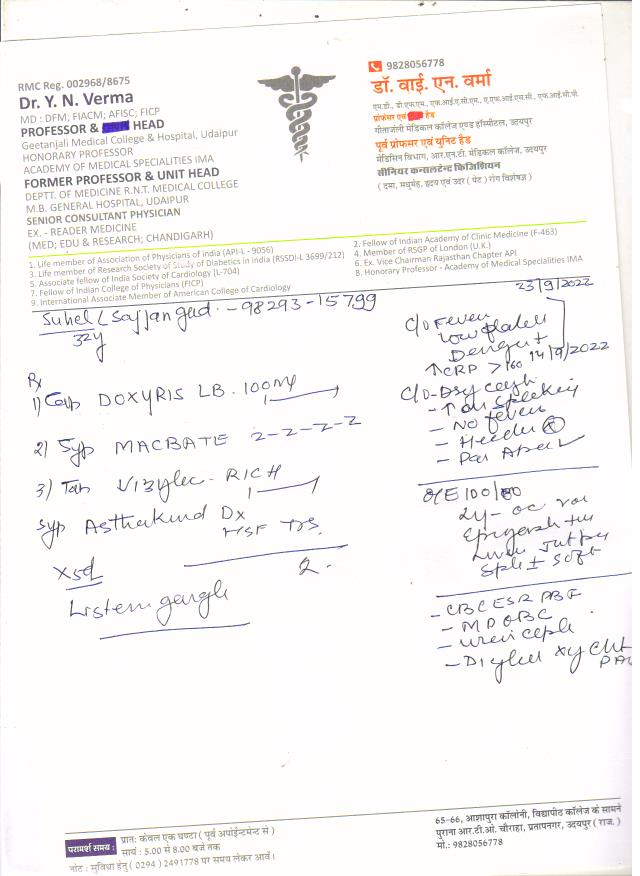 RMC Reg. 002968/8675
Dr. Y. N. Verma
MD : DFM; FIACM; AFISC; FICP
PROFESSOR & HEAD
Geetanjali Medical College & Hospital, Udaipur
HONORARY PROFESSOR
ACADEMY OF MEDICAL SPECIALITIES IMA
FORMER PROFESSOR & UNIT HEAD
DEPTT. OF MEDICINE R.N.T. MEDICAL COLLEGE
M.B. GENERAL HOSPITAL, UDAIPUR
SENIOR CONSULTANT PHYSICIAN
EX. - READER MEDICINE
(MED; EDU & RESEARCH; CHANDIGARH)
9828056778
डॉ. वाई. एन. वर्मा
एम.डी., डी.एफ.एम., एफ.आई.ए.सी.एम., ए.एफ.आई.एस.सी., एफ.आई.सी.पी.
प्रोफेसर एवं हैड
गीतांजली मेडिकल कॉलेज एण्ड हॉस्पिटल, उदयपुर
पूर्व प्रोफेसर एवं यूनिट हैड
मेडिसिन विभाग, आर.एन.टी. मेडिकल कॉलेज, उदयपुर
सीनियर कन्सलटेन्ट फिजिशियन
( दमा, मधुमेह, हृदय एवं उदर ( पेट ) रोग विशेषज्ञ )
1. Life member of Association of Physicians of india (API-L - 9056)
2. Fellow of Indian Academy of Clinic Medicine (F-463)
3. Life member of Research Society of Study of Diabetes in india (RSSDI-L 3699/212)
4. Member of RSGP of London (U.K.)
5. Associate fellow of India Society of Cardiology (L-704)
6. Ex. Vice Chairman Rajasthan Chapter API
7. Fellow of Indian College of Physicians (FICP)
8. Honorary Professor - Academy of Medical Specialities IMA
9. International Associate Member of American College of Cardiology
23/9/2022
Suhel (Sajjangad - 98293-15799
32y
Rx
1) Cap DOXYRIS LB. 100mg
2) Syp MACBATE 2-2-2-2
3) Tab VIZYLEC - RICH
Syp Asthakind Dx
HSF TDS
X5d
2.
Listerin gargle
C/O Fever
low platelet
Dengue +
↑CRP > 160 14/9/2022
C/O - Dry cough
- ↑ on speaking
- No fever
O/E 100/80
Liver Just pal
Spl ± soft
- CBC ESR PBF
- Digital Xy Cht
PA
परामर्श समय :
प्रातः केवल एक घण्टा ( पूर्व अपांईन्टमेन्ट से )
सायं : 5.00 से 8.00 बजे तक
नोट : सुविधा हेतु ( 0294 ) 2491778 पर समय लेकर आवें।
65-66, आशापुरा कॉलोनी, विद्यापीठ कॉलेज के सामने
पुराना आर.टी.ओ. चौराहा, प्रतापनगर, उदयपुर ( राज. )
मो.: 9828056778